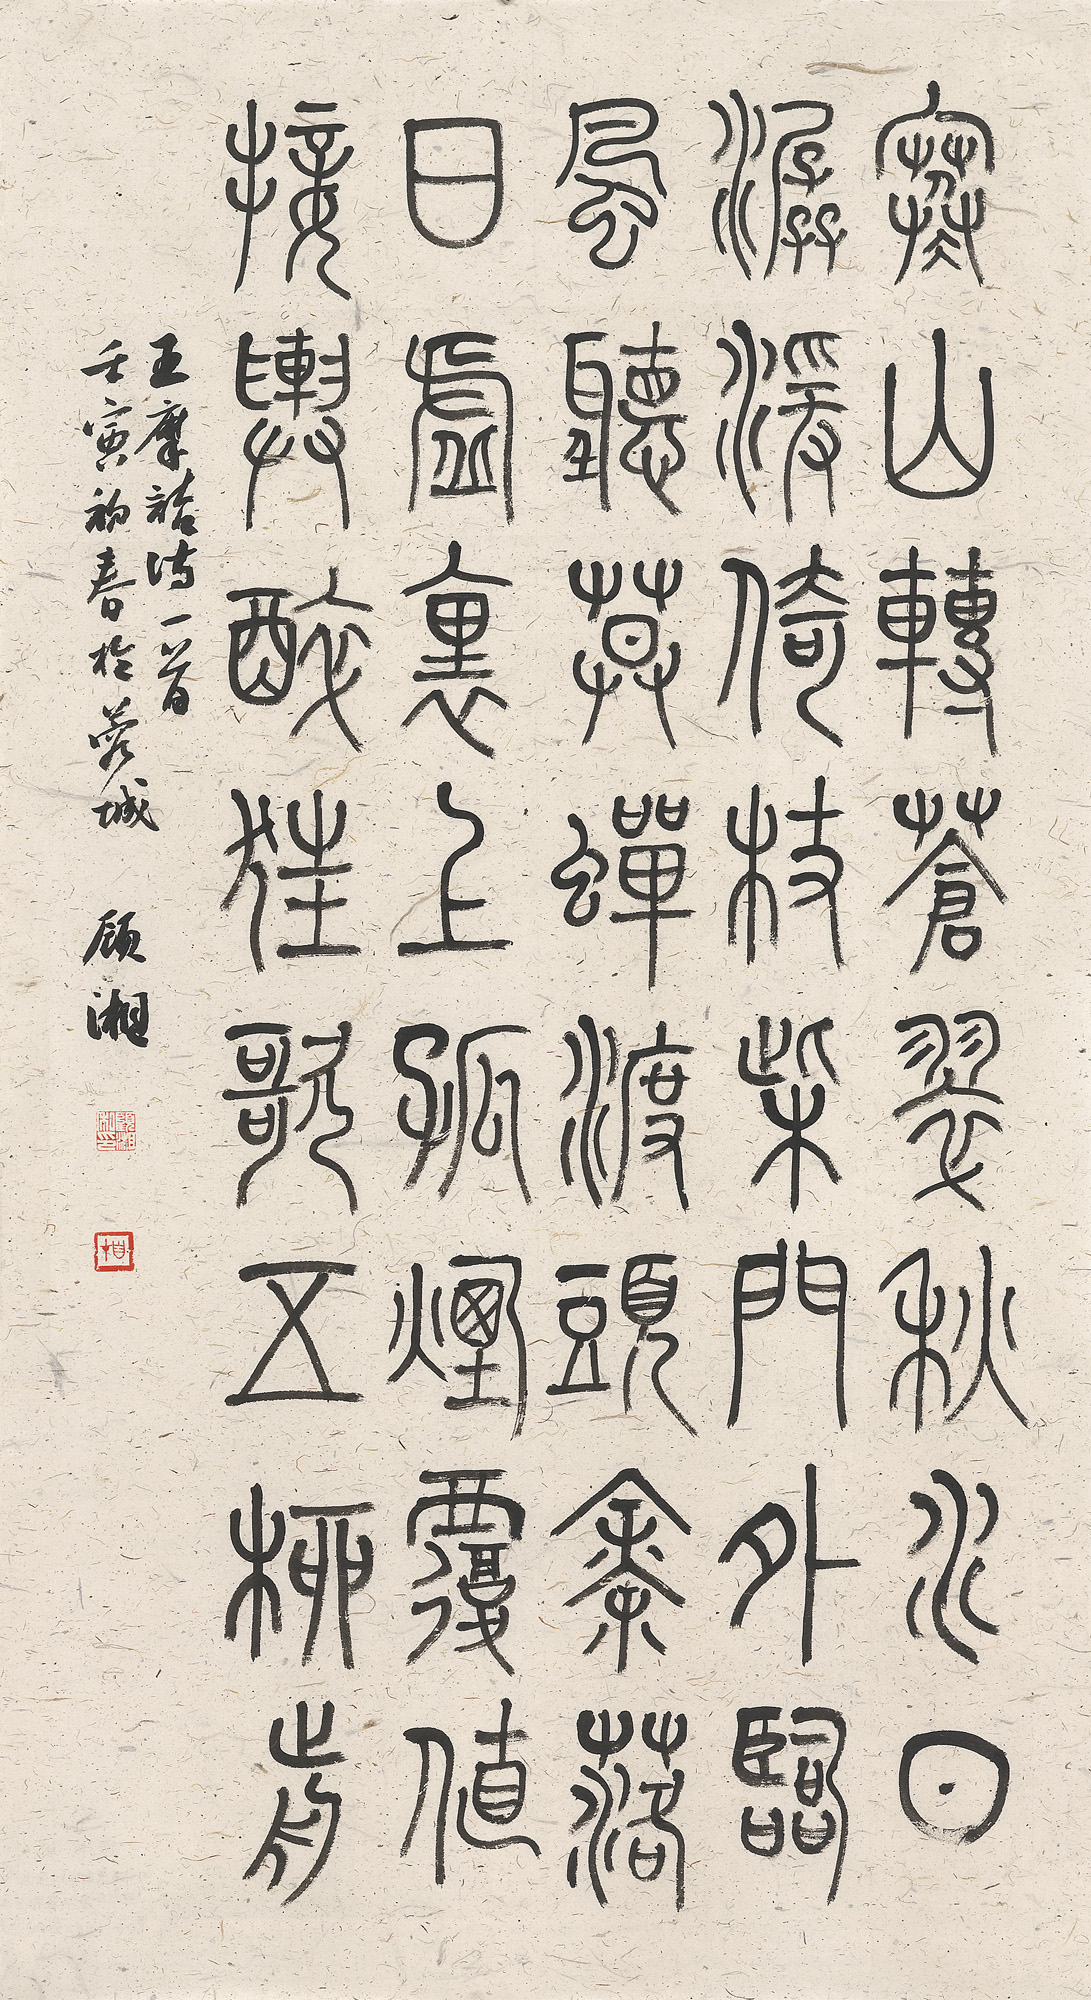 寒山轉蒼翠秋水日
潺湲倚杖柴門外臨
風聽暮蟬渡頭余落
日虛裏上孤煙覆值
接輿醉狂歌五柳前
王摩詰詩一首
壬寅初春於蓉城 顧湘